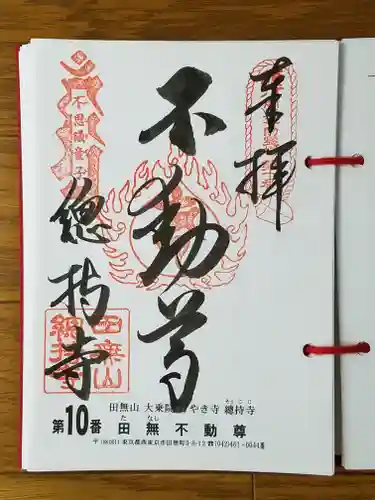 奉拝
不動尊
不思議童子
總持寺
田無山
總持寺
田無山 大乗院 けやき寺 總持寺
そうじじ
第10番 田無不動尊
た なし
東京都西東京市田無町3-8-12